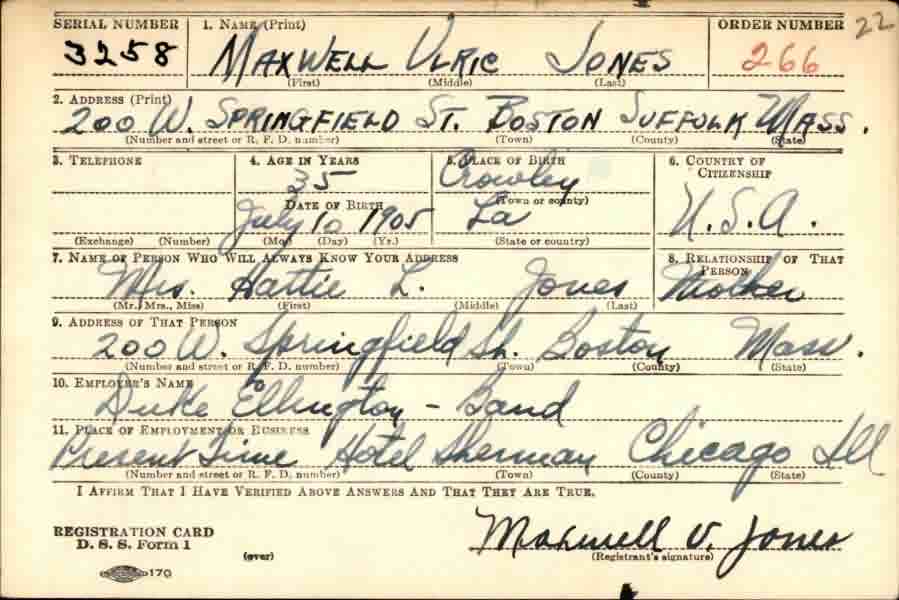 SERIAL NUMBER 1. NAME (Print) ORDER NUMBER 22
3258 MAXWELL ULRIC JONES 266
(First) (Middle) (Last)
2. ADDRESS (Print)
200 W. SPRINGFIELD ST. BOSTON SUFFOLK MASS.
(Number and street or R. F. D. number) (Town) (County) (State)
3. TELEPHONE 4. AGE IN YEARS 5. PLACE OF BIRTH 6. COUNTRY OF CITIZENSHIP
35 Crowley
DATE OF BIRTH (Town or county)
July 10 1905 La U.S.A.
(Exchange) (Number) (Mo.) (Day) (Yr.) (State or country)
7. NAME OF PERSON WHO WILL ALWAYS KNOW YOUR ADDRESS 8. RELATIONSHIP OF THAT PERSON
Mrs. Hattie L. Jones Mother
(Mr., Mrs., Miss) (First) (Middle) (Last)
9. ADDRESS OF THAT PERSON
200 W. Springfield St. Boston Mass.
(Number and street or R. F. D. number) (Town) (County) (State)
10. EMPLOYER'S NAME
Duke Ellington - Band
11. PLACE OF EMPLOYMENT OR BUSINESS
Present Time Hotel Sherman Chicago Ill
(Number and street or R. F. D. number) (Town) (County) (State)
I AFFIRM THAT I HAVE VERIFIED ABOVE ANSWERS AND THAT THEY ARE TRUE.
REGISTRATION CARD
D. S. S. Form 1 (over) Maxwell U. Jones
(Registrant's signature)
170